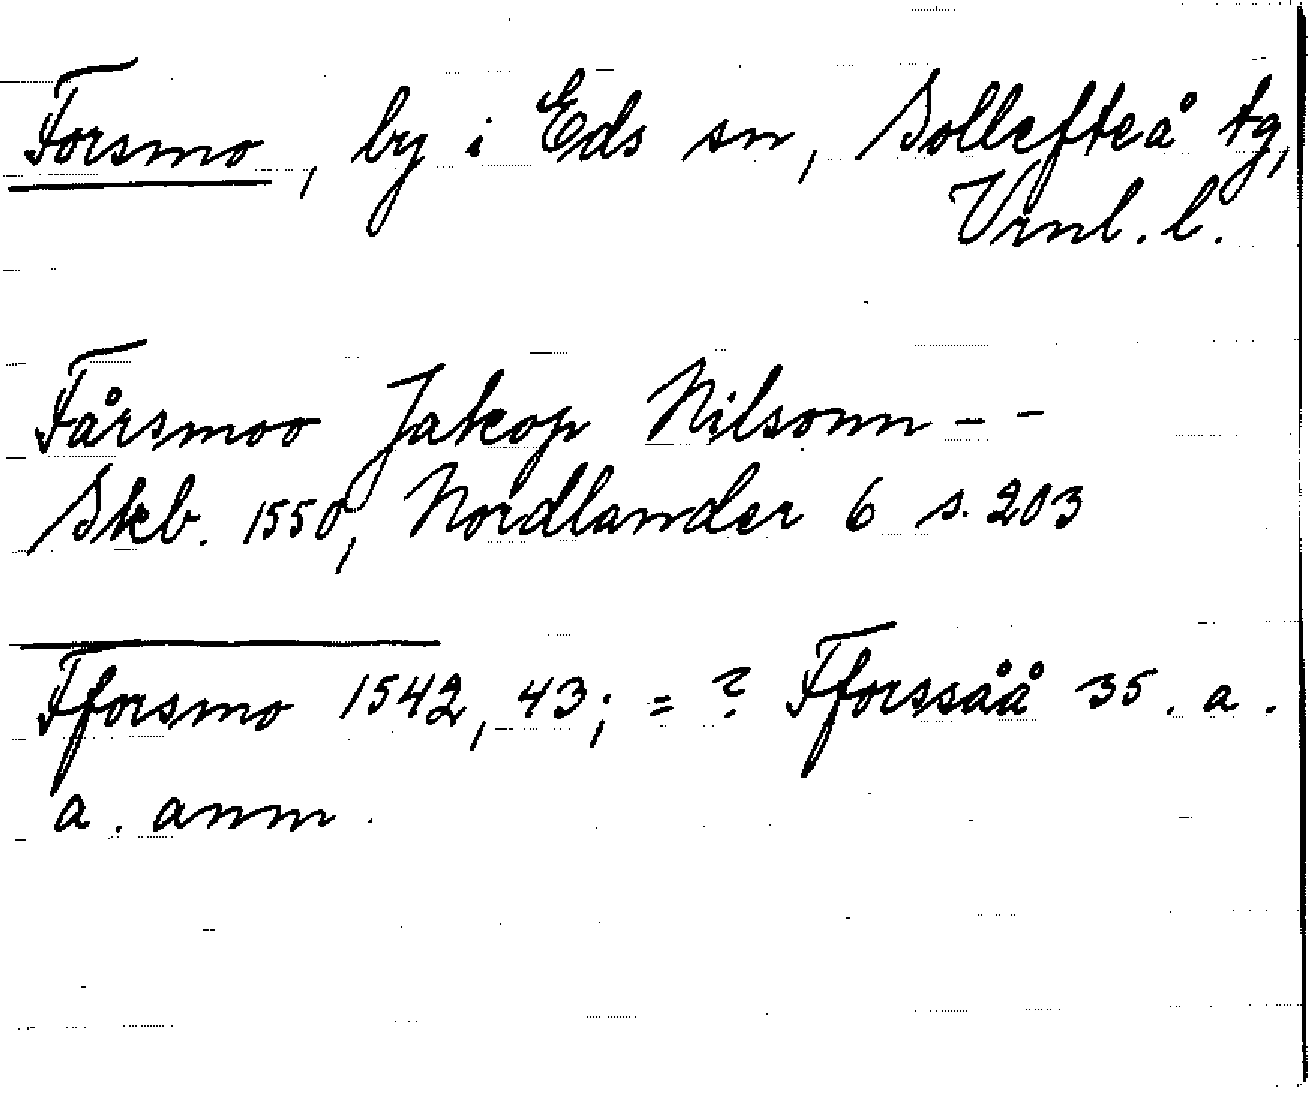 Forsmo, by i Eds sn, Sollefteå tg,
Vrnl. l.
Fårsmoo Jakop Nilsonn - -
Skb. 1550, Nordlander 6 s. 203
Fforsmo 1542, 43; = ? Fforssåå 35. a.
a. anm.